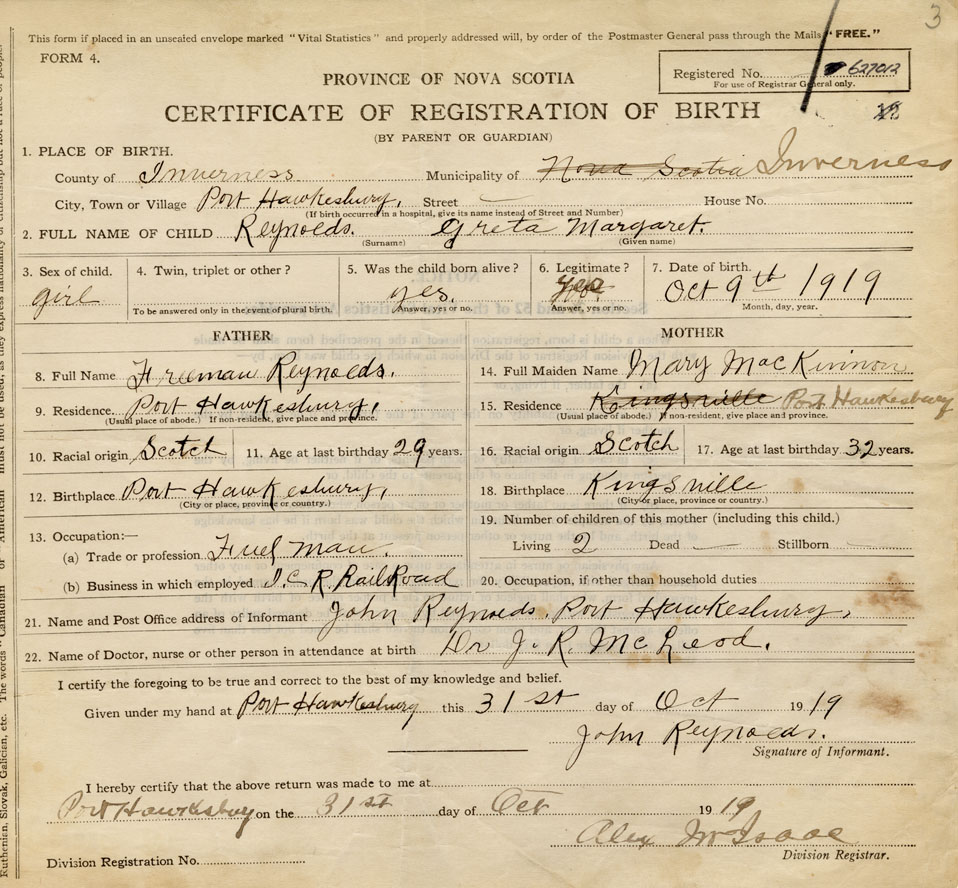 3
This form if placed in an unsealed envelope marked "Vital Statistics" and properly addressed will, by order of the Postmaster General pass through the Mails "FREE."
FORM 4.
Registered No. 627012
For use of Registrar General only.
PROVINCE OF NOVA SCOTIA
CERTIFICATE OF REGISTRATION OF BIRTH
(BY PARENT OR GUARDIAN)
1. PLACE OF BIRTH.
County of Inverness Municipality of Nova Scotia Inverness
City, Town or Village Port Hawkesbury, Street House No.
(If birth occurred in a hospital, give its name instead of Street and Number)
2. FULL NAME OF CHILD Reynolds. Greta Margaret.
(Surname) (Given name)
3. Sex of child. 4. Twin, triplet or other? 5. Was the child born alive? 6. Legitimate? 7. Date of birth.
girl yes. yes Oct 9th 1919
To be answered only in the event of plural birth. Answer, yes or no. Answer, yes or no. Month, day, year.
FATHER
8. Full Name Freeman Reynolds.
9. Residence. Port Hawkesbury,
(Usual place of abode.) If non-resident, give place and province.
10. Racial origin Scotch 11. Age at last birthday 29 years.
12. Birthplace Port Hawkesbury,
(City or place, province or country.)
13. Occupation:—
(a) Trade or profession Fuel man.
(b) Business in which employed I.C.R. RailRoad
MOTHER
14. Full Maiden Name Mary MacKinnon
15. Residence Kingsville Port Hawkesbury
(Usual place of abode.) If non-resident, give place and province.
16. Racial origin Scotch 17. Age at last birthday 32 years.
18. Birthplace Kingsville
(City or place, province or country.)
19. Number of children of this mother (including this child.)
Living 2 Dead Stillborn
20. Occupation, if other than household duties
21. Name and Post Office address of Informant John Reynolds, Port Hawkesbury,
22. Name of Doctor, nurse or other person in attendance at birth Dr J. R. McLeod.
I certify the foregoing to be true and correct to the best of my knowledge and belief.
Given under my hand at Port Hawkesbury this 31st day of Oct 1919
John Reynolds.
Signature of Informant.
I hereby certify that the above return was made to me at
Port Hawkesbury on the 31st day of Oct 1919
Alex McIsaac
Division Registrar.
Division Registration No.